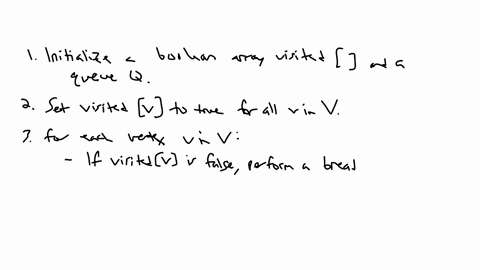 1. Initialize a boolean array visited [ ] and a
queue Q.
2. Set visited [v] to true for all v in V.
3. For each vertex v in V:
- If visited[v] is false, perform a bread